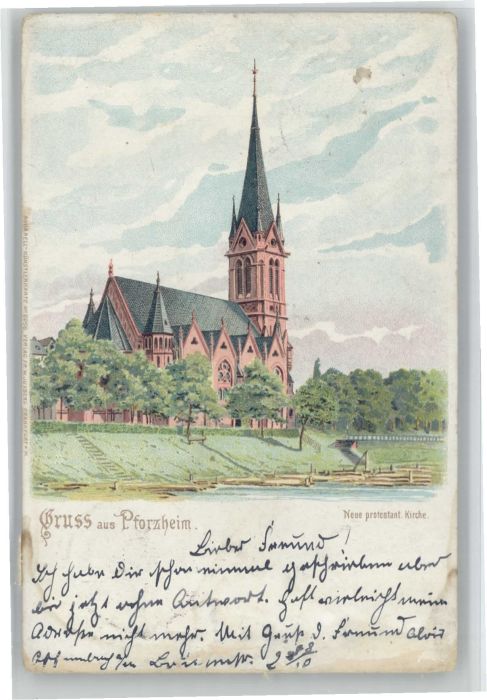 Gruss aus Pforzheim.
Neue protestant. Kirche.
Lieber Freund!
Ich habe Dir schon einmal geschrieben aber
bis jetzt ohne Antwort. Hast vielleicht meine
Adresse nicht mehr. Mit Gruß d. Freund Alois